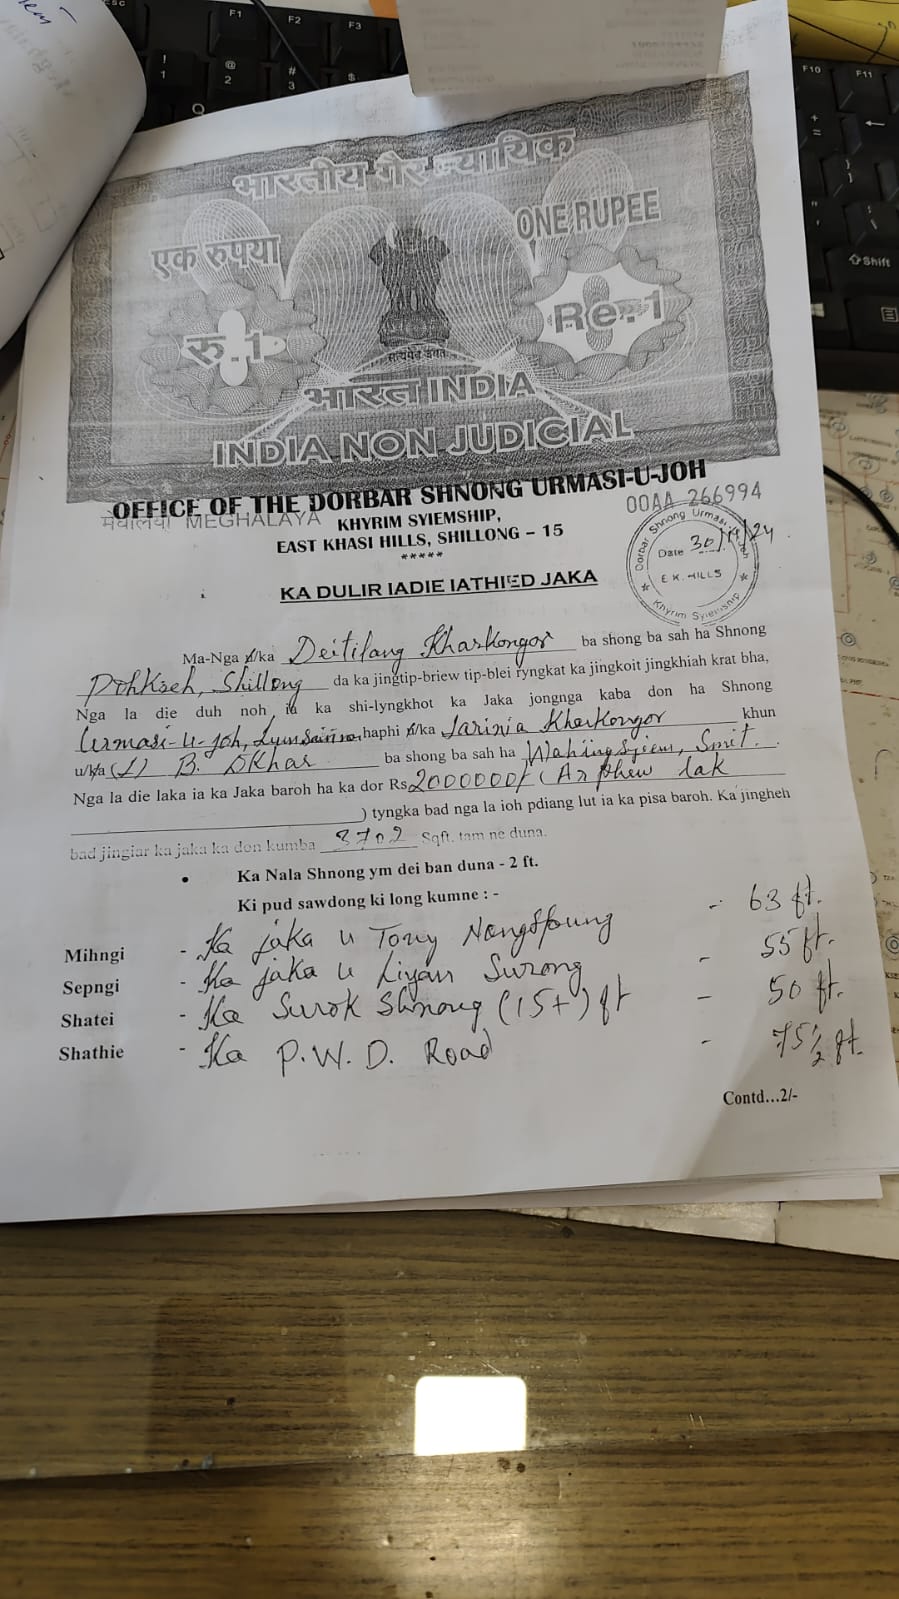 भारतीय गैर न्यायिक
एक रुपया ONE RUPEE
रु.1 Re.1
सत्यमेव जयते
भारत INDIA
INDIA NON JUDICIAL
OFFICE OF THE DORBAR SHNONG URMASI-U-JOH
मेघालय MEGHALAYA 00AA 266994
KHYRIM SYIEMSHIP,
EAST KHASI HILLS, SHILLONG – 15
*****
Dorbar Shnong Urmasi-U-Joh
Date 30/11/24
E.K. HILLS
Khyrim Syiemship
KA DULIR IADIE IATHIED JAKA
Ma-Nga u/ka Deitilang Kharkongor ba shong ba sah ha Shnong
Pohkseh, Shillong da ka jingtip-briew tip-blei ryngkat ka jingkoit jingkhiah krat bha,
Nga la die duh noh ia ka shi-lyngkhot ka Jaka jongnga kaba don ha Shnong
Urmasi-u-joh, haphi u/ka Larinia Kharkongor khun
u/ka (L) B. Dkhar ba shong ba sah ha Wahiingsyiem, Smit.
Nga la die laka ia ka Jaka baroh ha ka dor Rs 2000000/- (Ar phew lak
) tyngka bad nga la ioh pdiang lut ia ka pisa baroh. Ka jingheh
bad jingiar ka jaka ka don kumba 3702 Sqft. tam ne duna.
• Ka Nala Shnong ym dei ban duna - 2 ft.
Ki pud sawdong ki long kumne : -
Mihngi - Ka jaka u Tony Nongspung - 63 ft.
Sepngi - Ka jaka u Liyan Surong - 55 ft.
Shatei - Ka Surok Shnong (15+) ft - 50 ft.
Shathie - Ka P.W.D. Road - 75½ ft.
Contd...2/-
esc F1 F2 F3 F10 F11
! 1 @ 2 # 3 $ Q + =
Shift